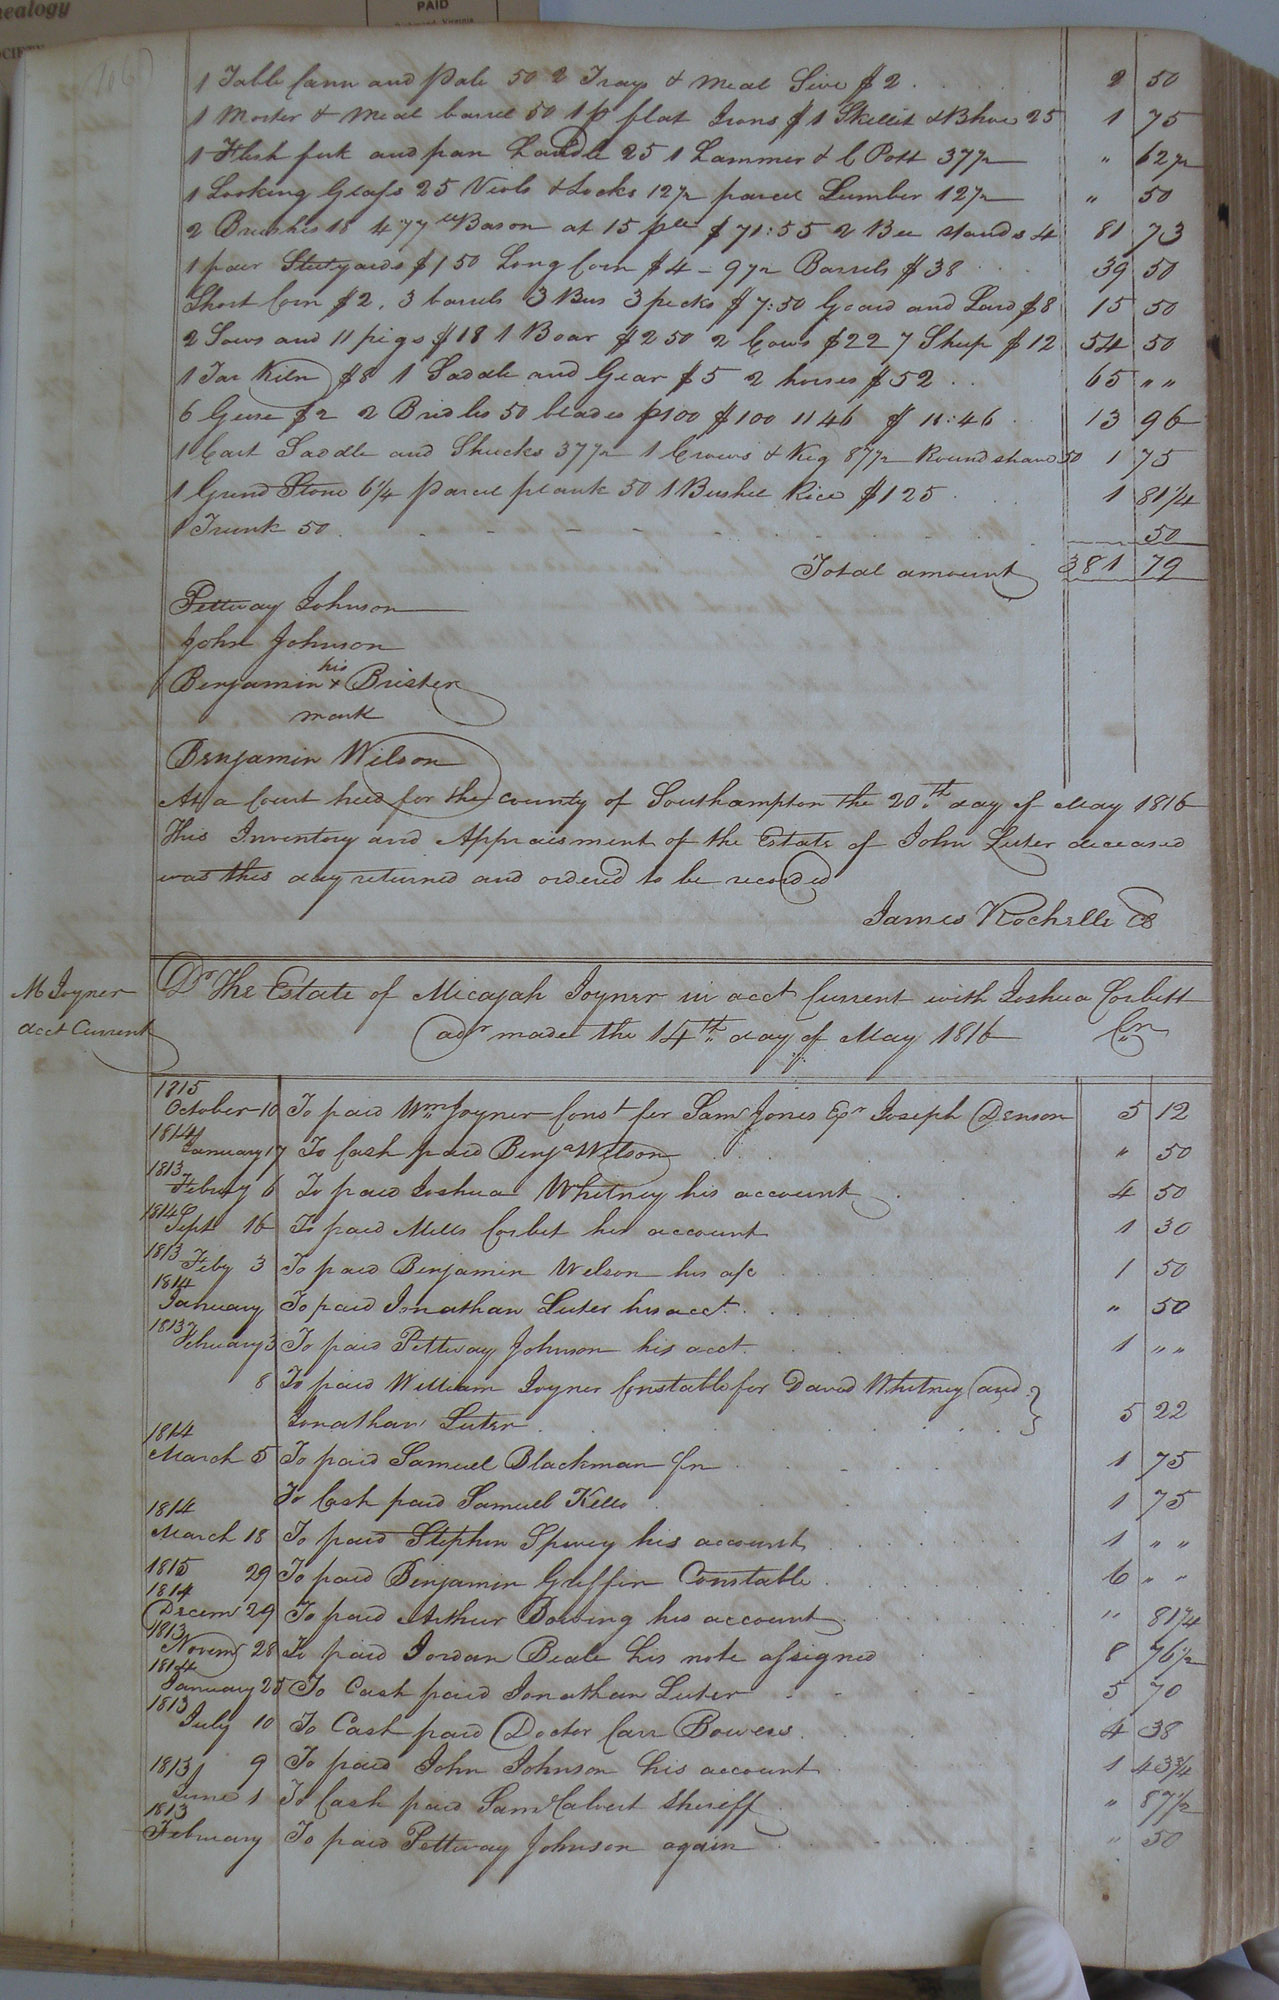 nealogy
PAID
Richmond, Virginia
SOCIETY
1 Table Cann and Pale 50 2 Trays & meal Sive $2 2 50
1 Morter & Meal barrel 50 1 pr flat Irons $1 Skillit & B hoe 25 1 75
1 Flesh fork and pan Laddle 25 1 Hammer & C Pott 37½ " 62½
1 Looking Glass 25 Viols & Locks 12½ parcel Lumber 12½ " 50
2 Brushes 18 477 lb Bason at 15 pr $71:55 2 Bee stands 4 81 73
1 pair Steelyards $1 50 Long Corn $4 - 9½ Barrels $38 39 50
Short Corn $2. 3 barrels 3 Bus 3 pecks $7:50 Goard and Lard $8 15 50
2 Sows and 11 pigs $18 1 Boar $2 50 2 Cows $22 7 Sheep $12 54 50
1 Tar Kiln $8 1 Saddle and Gear $5 2 horses $52 65 " "
6 Geese $2 2 Bridles 50 blades p100 $100 1146 $11:46 13 96
1 Cart Saddle and Shucks 37½ 1 Crows & Keg 87½ Round shave 50 1 75
1 Grind Stone 6¼ parcel plank 50 1 Bushel Rice $1 25 1 81¼
1 Trunk 50 50
Total amount 381 79
Pettway Johnson
John Johnson
his
Benjamin x Brister
mark
Benjamin Wilson
At a Court held for the county of Southampton the 20th day of May 1816
This Inventory and Appraisment of the Estate of John Luter deceased
was this day returned and ordered to be recorded
James Rochelle C
M Joyner
acct Current
Dr The Estate of Micajah Joyner in acct Current with Joshua Corbitt
adr made the 14th day of May 1816 Cr
1815
October 10 To paid Wm Joyner Const for Saml Jones Exr Joseph Denson 5 12
1814
January 17 To Cash paid Benja Wilson " 50
1813
Febuy 6 To paid Joshua Whitney his account 4 50
1814
Sept 16 To paid Mills Corbet his account 1 30
1813
Feby 3 To paid Benjamin Wilson his a/c 1 50
1814
January To paid Jonathan Luter his acct " 50
1813
February 3 To paid Pettway Johnson his acct 1 " "
8 To paid William Joyner Constable for David Whitney and
Jonathan Luter 5 22
1814
March 5 To paid Samuel Blackman Jn 1 75
To Cash paid Samuel Kello 1 75
1814
March 18 To paid Stephen Spivey his account 1 " "
1815
29 To paid Benjamin Griffin Constable 6 " "
1814
Decemr 29 To paid Arthur Bowing his account " 81¼
1813
Novemr 28 To paid Jordan Beale his note assigned 8 76½
1814
January 25 To Cash paid Jonathan Luter 5 70
1813
July 10 To Cash paid Doctor Carr Bowers 4 38
1813 9 To paid John Johnson his account 1 43¾
June 1 To Cash paid Saml Calvert Sheriff " 87½
1813
February To paid Pettway Johnson again " 50